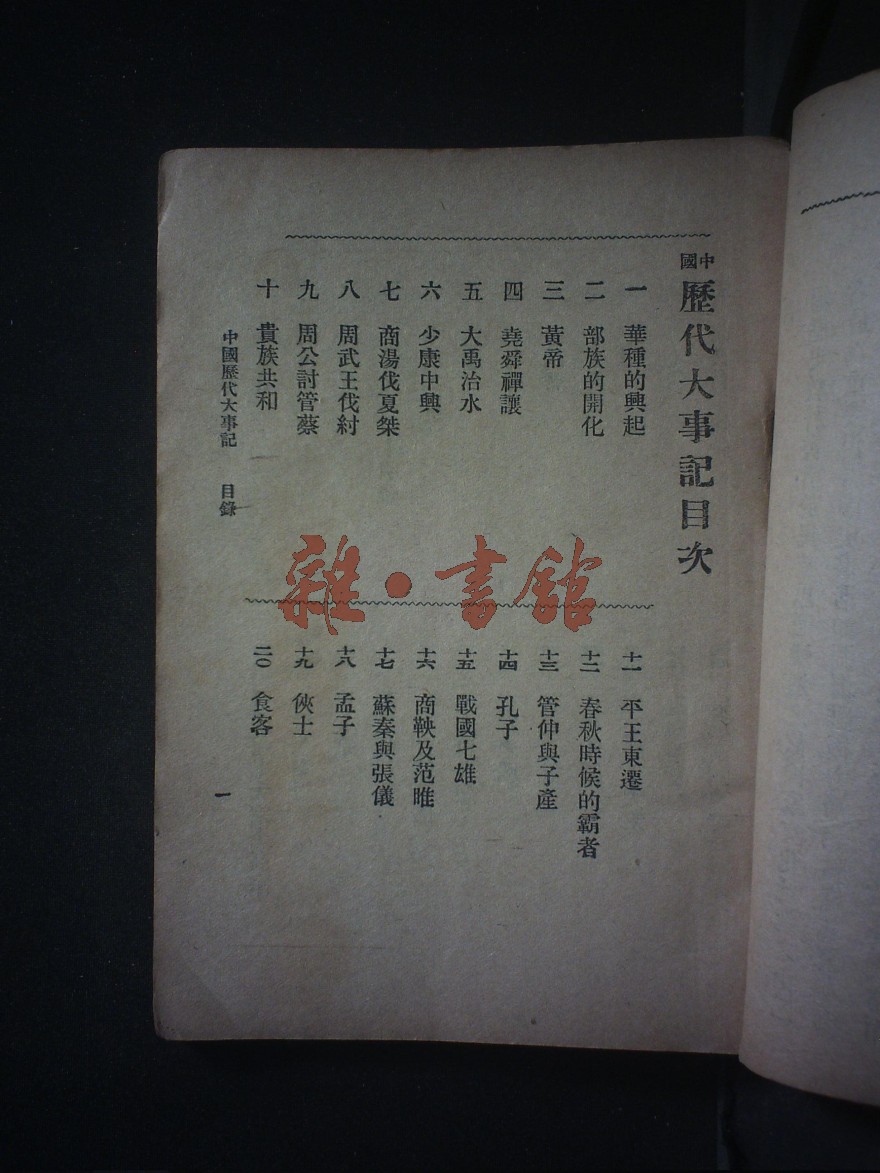 中國歷代大事記目次
一 華種的興起
二 部族的開化
三 黃帝
四 堯舜禪讓
五 大禹治水
六 少康中興
七 商湯伐夏桀
八 周武王伐紂
九 周公討管蔡
十 貴族共和
十一 平王東遷
十二 春秋時候的霸者
十三 管仲與子產
十四 孔子
十五 戰國七雄
十六 商鞅及范雎
十七 蘇秦與張儀
十八 孟子
十九 俠士
二〇 食客
中國歷代大事記 目錄 一
雜·書館